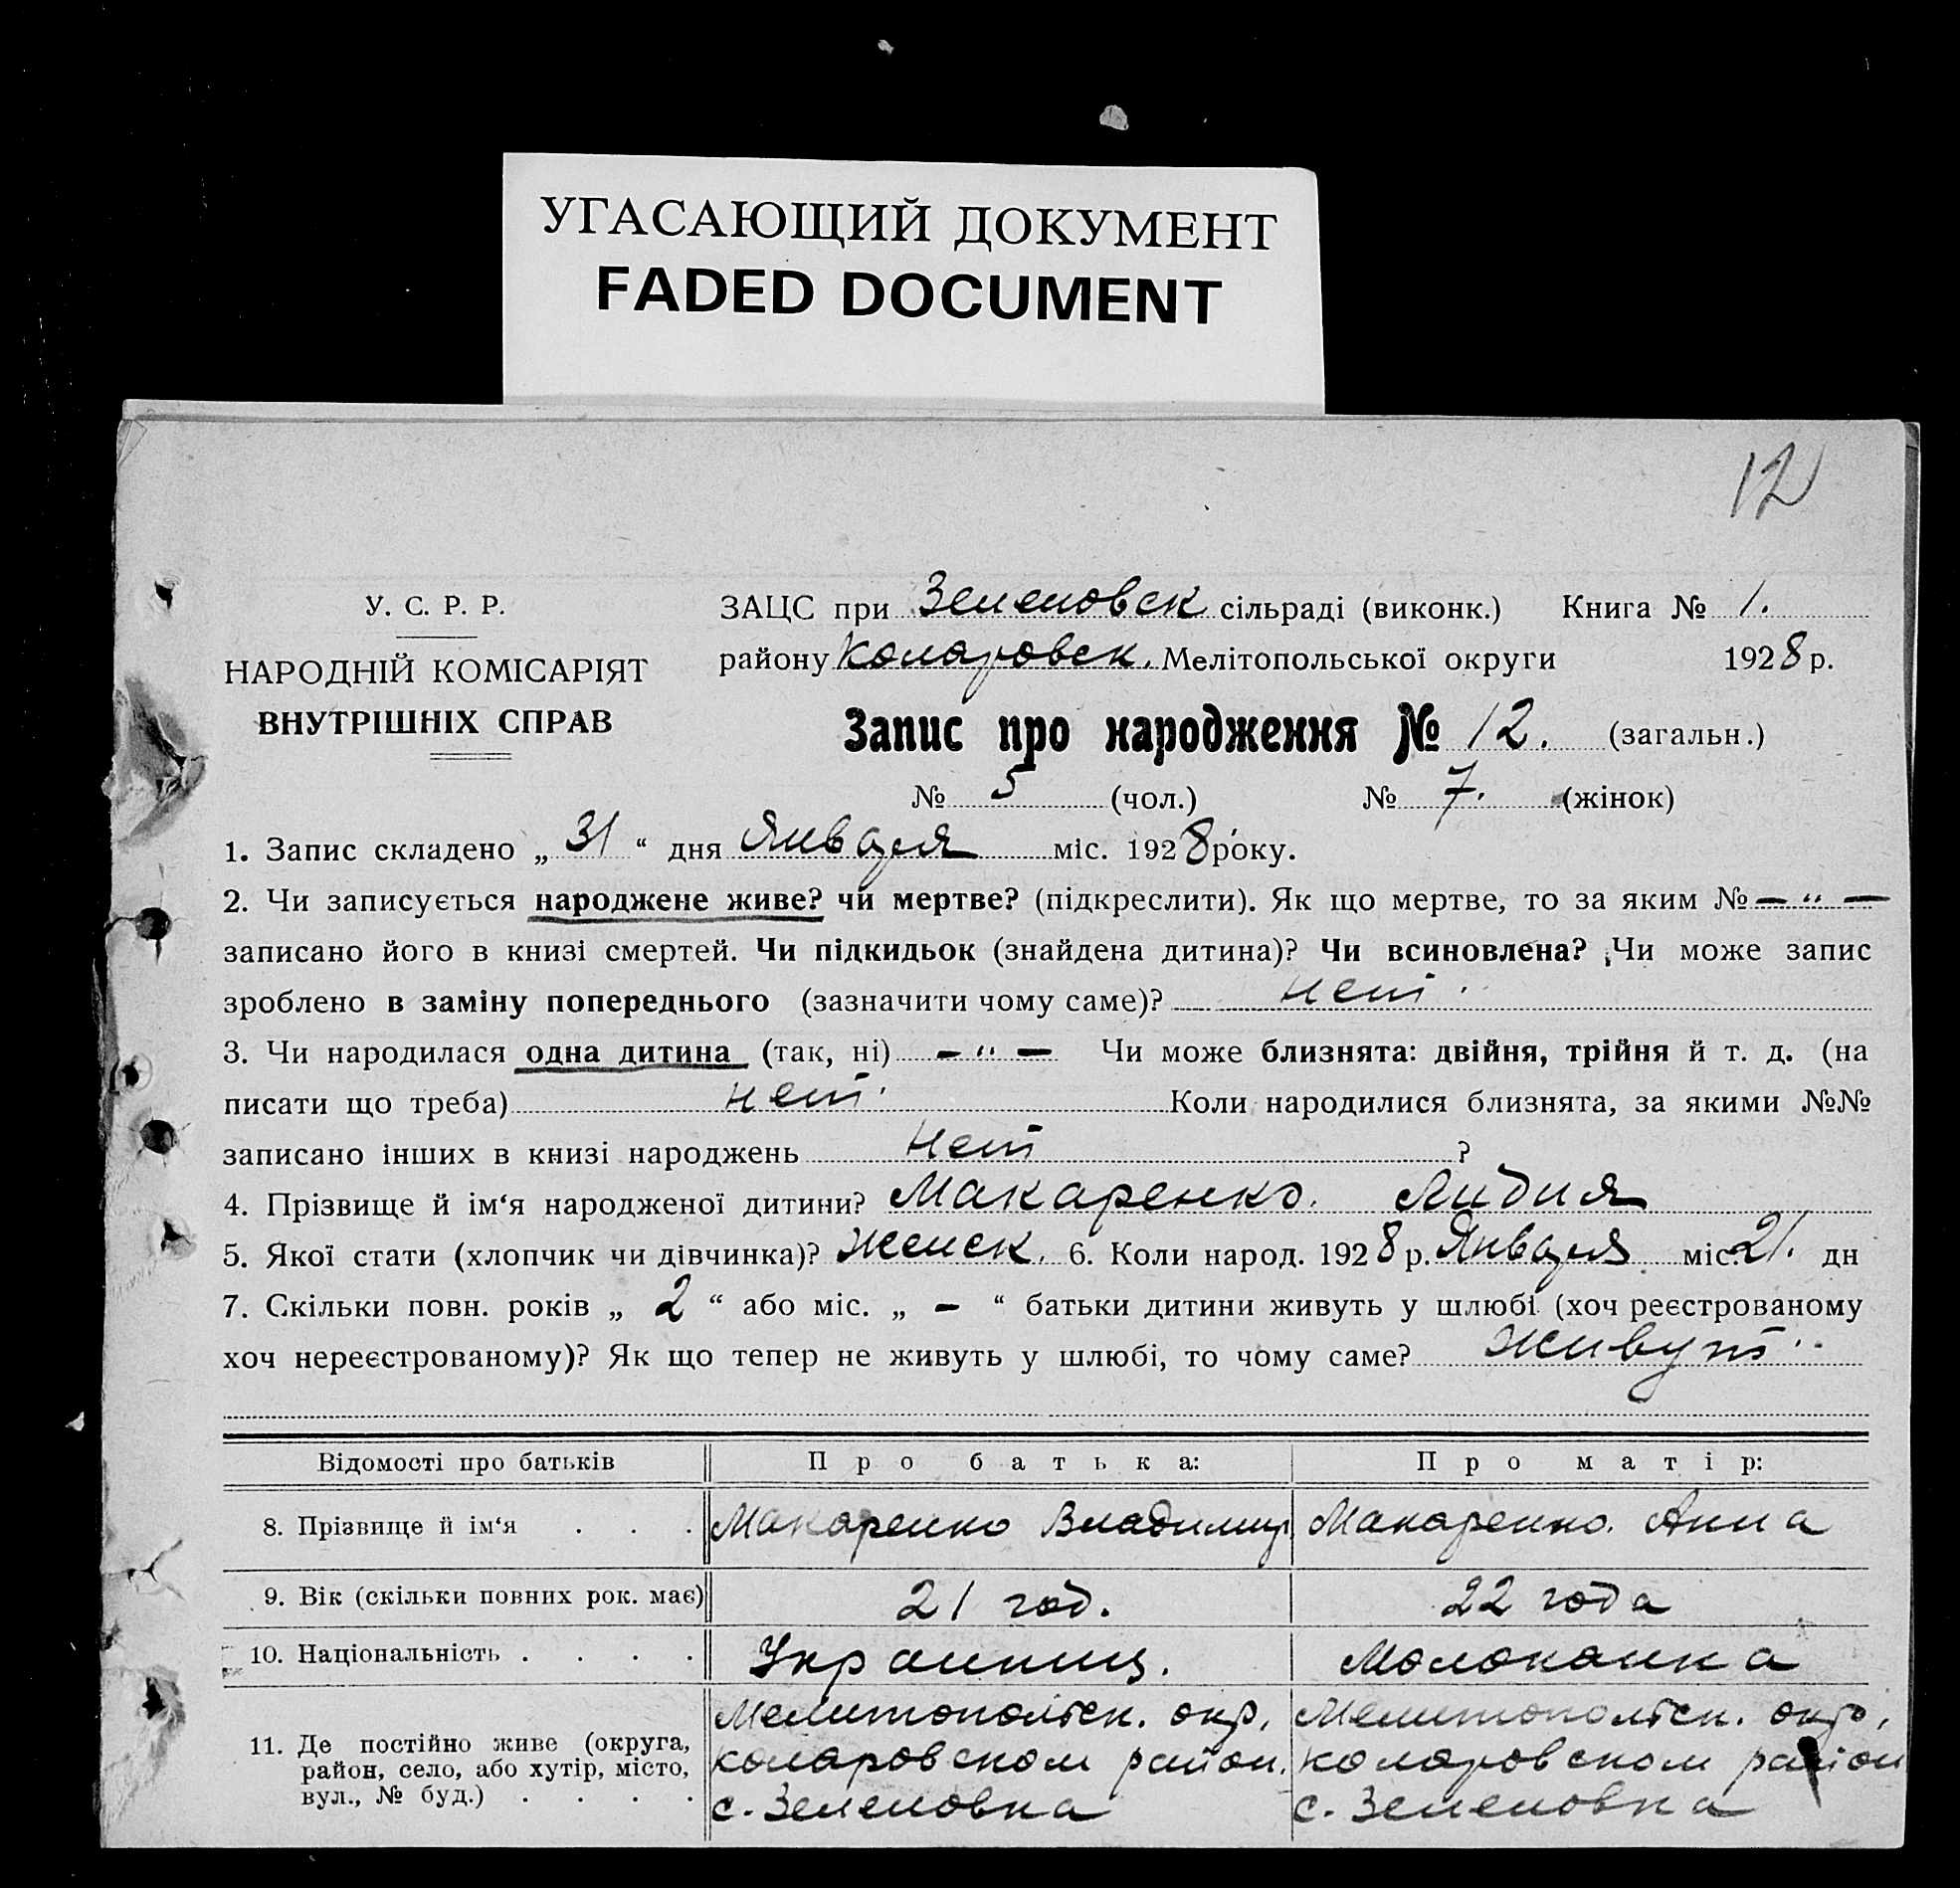 УГАСАЮЩИЙ ДОКУМЕНТ
FADED DOCUMENT
12
У. С. Р. Р.
НАРОДНІЙ КОМІСАРІЯТ
ВНУТРІШНІХ СПРАВ
ЗАЦС при Зеленовск сільраді (виконк.) Книга № 1.
району Коларовск. Мелітопольської округи 1928 р.
Запис про народження № 12. (загальн.)
№ 5 (чол.) № 7. (жінок)
1. Запис складено „ 31 “ дня Января міс. 1928 року.
2. Чи записується народжене живе? чи мертве? (підкреслити). Як що мертве, то за яким № — “ —
записано його в книзі смертей. Чи підкидьок (знайдена дитина)? Чи всиновлена? Чи може запис
зроблено в заміну попереднього (зазначити чому саме)? нет
3. Чи народилася одна дитина (так, ні) — “ — Чи може близнята: двійня, трійня й т. д. (на
писати що треба) нет Коли народилися близнята, за якими №№
записано інших в книзі народжень нет ?
4. Прізвище й ім‘я народженої дитини? Макаренко. Лидия
5. Якої стати (хлопчик чи дівчинка)? Женск. 6. Коли народ. 1928 р. Января міс. 21. дн
7. Скільки повн. років „ 2 “ або міс. „ — “ батьки дитини живуть у шлюбі (хоч реєстрованому
хоч нереєстрованому)? Як що тепер не живуть у шлюбі, то чому саме? живут
Відомості про батьків Про батька: Про матір:
8. Прізвище й ім‘я . . . Макаренко Владимир Макаренко. Анна
9. Вік (скільки повних рок. має) 21 год. 22 года
10. Національність . . . . Украинец. Молоканка
11. Де постійно живе (округа, район, село, або хутір, місто, вул., № буд.) . . . .
Мелитопольск. окр, Коларовском район. с. Зеленовка
Мелитопольск. окр, Коларовском район с. Зеленовка